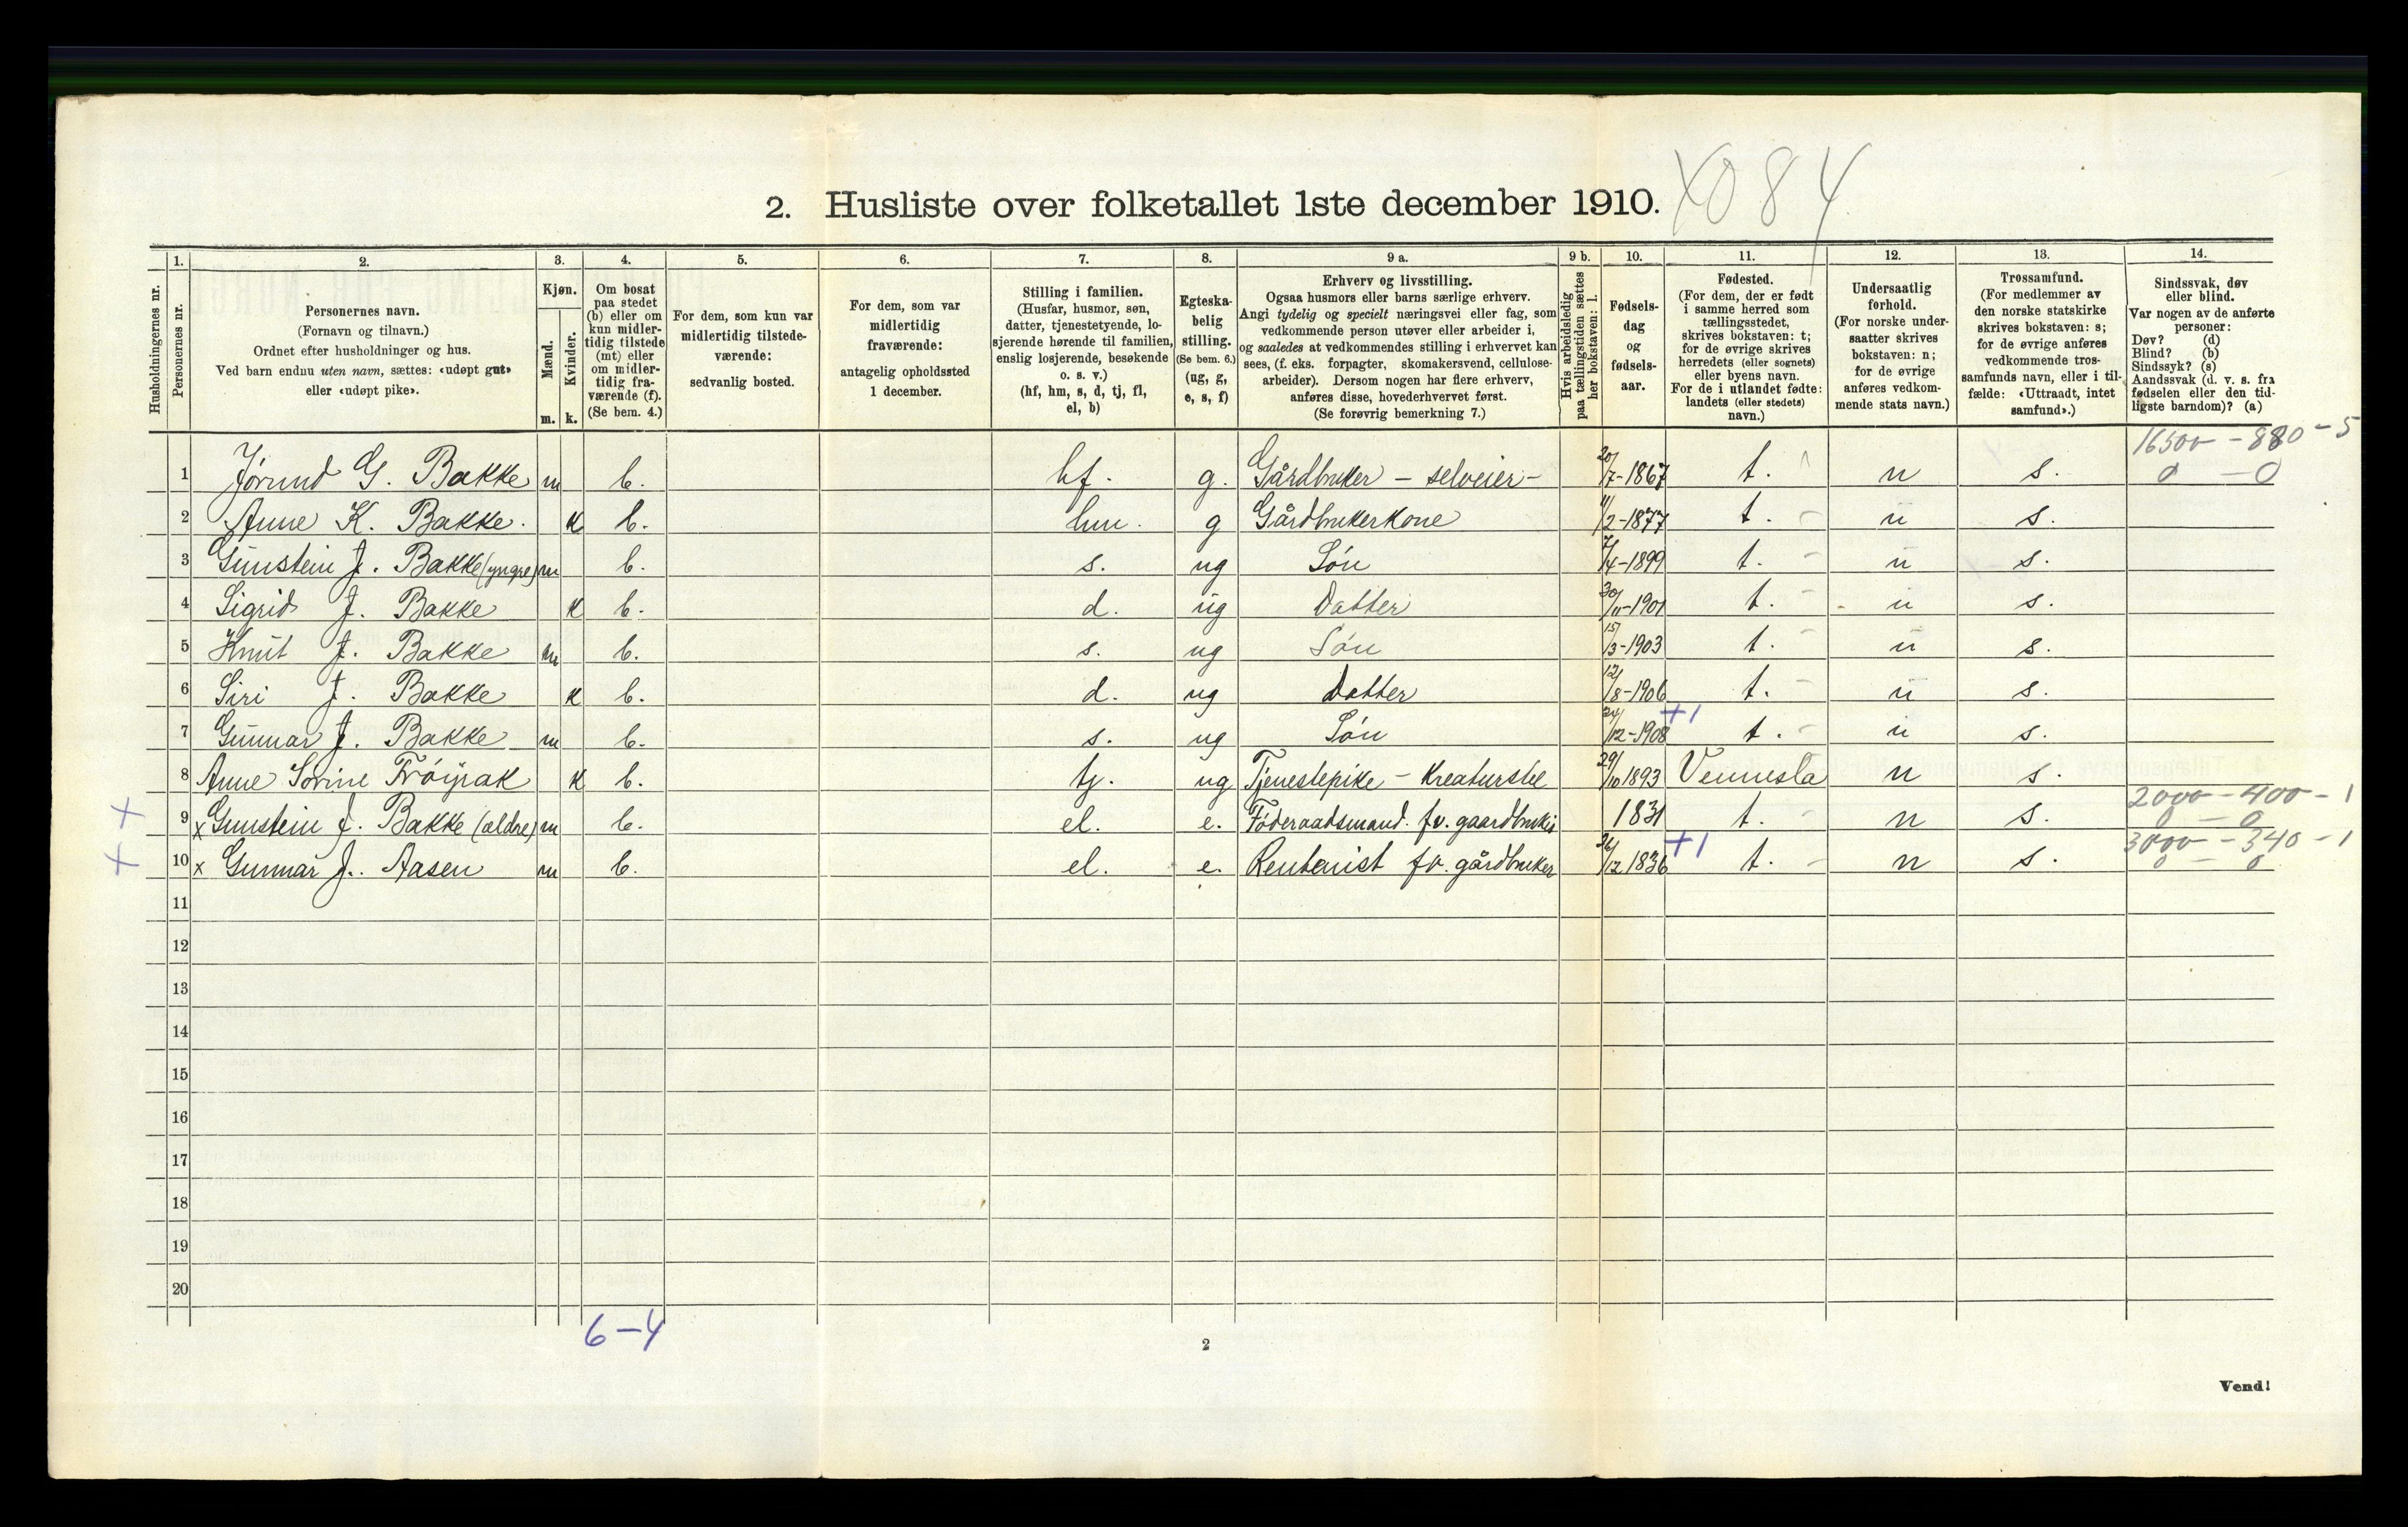 2. Husliste over folketallet 1ste december 1910.
X084
1. 2. 3. 4. 5. 6. 7. 8. 9 a. 9 b. 10. 11. 12. 13. 14.
Husholdningernes nr.
Personernes nr.
Personernes navn.
(Fornavn og tilnavn.)
Ordnet efter husholdninger og hus.
Ved barn endnu uten navn, sættes: «udøpt gut»
eller «udøpt pike».
Kjøn.
Mænd.
m.
Kvinder.
k.
Om bosat
paa stedet
(b) eller om
kun midler-
tidig tilstede
(mt) eller
om midler-
tidig fra-
værende (f).
(Se bem. 4.)
For dem, som kun var
midlertidig tilstede-
værende:
sedvanlig bosted.
For dem, som var
midlertidig
fraværende:
antagelig opholdssted
1 december.
Stilling i familien.
(Husfar, husmor, søn,
datter, tjenestetyende, lo-
sjerende hørende til familien,
enslig losjerende, besøkende
o. s. v.)
(hf, hm, s, d, tj, fl,
el, b)
Egteska-
belig
stilling.
(Se bem. 6.)
(ug, g,
e, s, f)
Erhverv og livsstilling.
Ogsaa husmors eller barns særlige erhverv.
Angi tydelig og specielt næringsvei eller fag, som
vedkommende person utøver eller arbeider i,
og saaledes at vedkommendes stilling i erhvervet kan
sees, (f. eks. forpagter, skomakersvend, cellulose-
arbeider). Dersom nogen har flere erhverv,
anføres disse, hovederhvervet først.
(Se forøvrig bemerkning 7.)
Hvis arbeidsledig
paa tællingstiden sættes
her bokstaven: l.
Fødsels-
dag
og
fødsels-
aar.
Fødested.
(For dem, der er født
i samme herred som
tællingsstedet,
skrives bokstaven: t;
for de øvrige skrives
herredets (eller sognets)
eller byens navn.
For de i utlandet fødte:
landets (eller stedets)
navn.)
Undersaatlig
forhold.
(For norske under-
saatter skrives
bokstaven: n;
for de øvrige
anføres vedkom-
mende stats navn.)
Trossamfund.
(For medlemmer av
den norske statskirke
skrives bokstaven: s;
for de øvrige anføres
vedkommende tros-
samfunds navn, eller i til-
fælde: «Uttraadt, intet
samfund».)
Sindssvak, døv
eller blind.
Var nogen av de anførte
personer:
Døv? (d)
Blind? (b)
Sindssyk? (s)
Aandssvak (d. v. s. fra
fødselen eller den tid-
ligste barndom)? (a)
16500 - 880 - 5
1 Jørund G. Bakke m b. hf. g. Gårdbruker - selveier - 20/7-1867 t. n s. 0 - 0
2 Anne K. Bakke. k b. hm. g Gårdbrukerkone 11/2-1877 t. - n s.
3 Gunstein J. Bakke (yngre) m b. s. ug Søn 7/4-1899 t. - n s.
4 Sigrid J. Bakke k b. d. ug Datter 30/11-1901 t. - n s.
5 Knut J. Bakke m b. s. ug Søn 15/3-1903 t. - n s.
6 Siri J. Bakke k b. d. ug Datter 12/8-1906 t. - n s.
+1
7 Gunnar J. Bakke m b. s. ug Søn 24/12-1908 t. - n s.
8 Anne Sorine Frøyrak k b. tj. ug Tjenestepike - Kreaturstel 29/10 1893 Vennesla n s.
2000 - 400 - 1
+ 9 x Gunstein J. Bakke (ældre) m b. el. e. Føderaadsmand. fv. gaardbruker 1831 t. - n s. 0 - 0
+1
3000 - 340 - 1
+ 10 x Gunnar J. Aasen m b. el. e. Rentenist fv. gårdbruker 26/12 1836 t. - n s. 0 - 0
11
12
13
14
15
16
17
18
19
20
6-4
2
Vend!